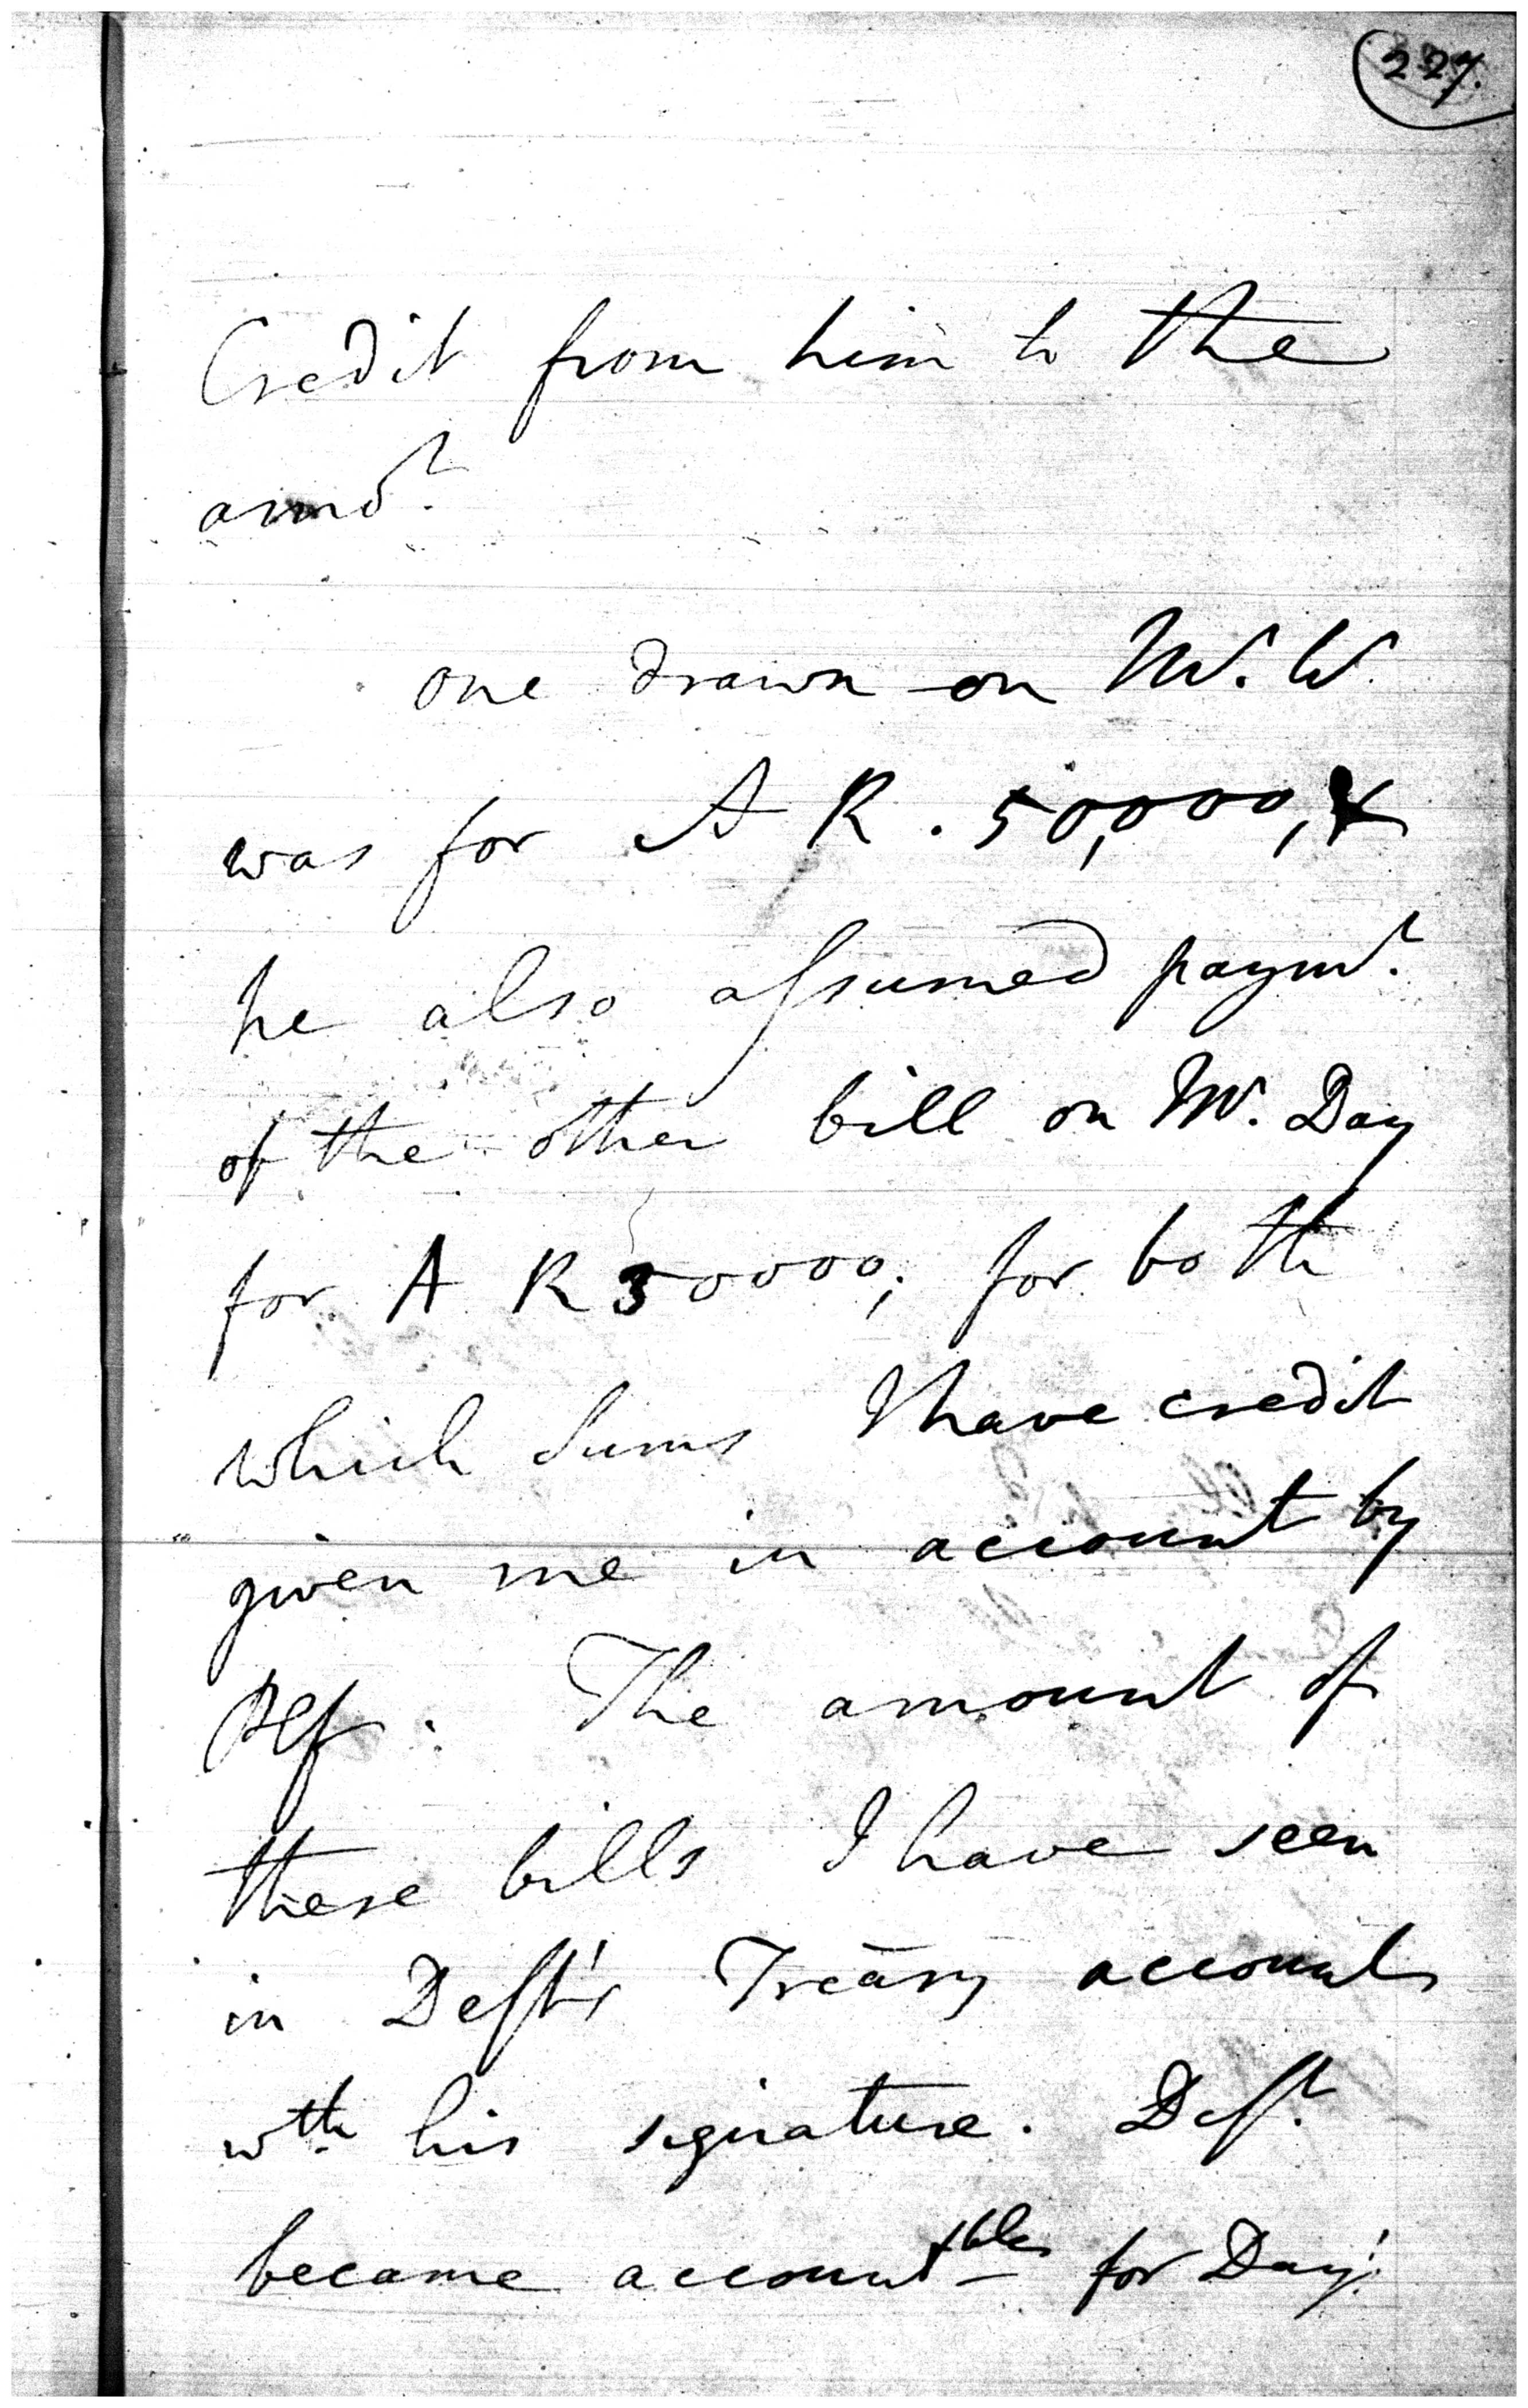 227.
Credit from him to the
amot.
one drawn on Mr. W.
was for A R. 50,000, &
he also assumed paymt.
of the other bill on Mr. Day
for A R 30000; for both
which Sums I have credit
given me in account by
Def. The amount of
these bills I have seen
in Deft's Treasy accounts
wth his signature. Deft.
became accountble for Day's